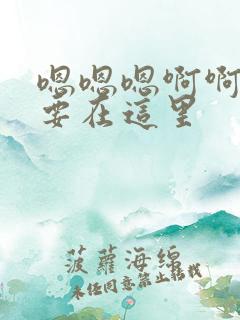 嗯嗯嗯啊啊
要在這里
菠蘿海綿
未经同意禁止转载